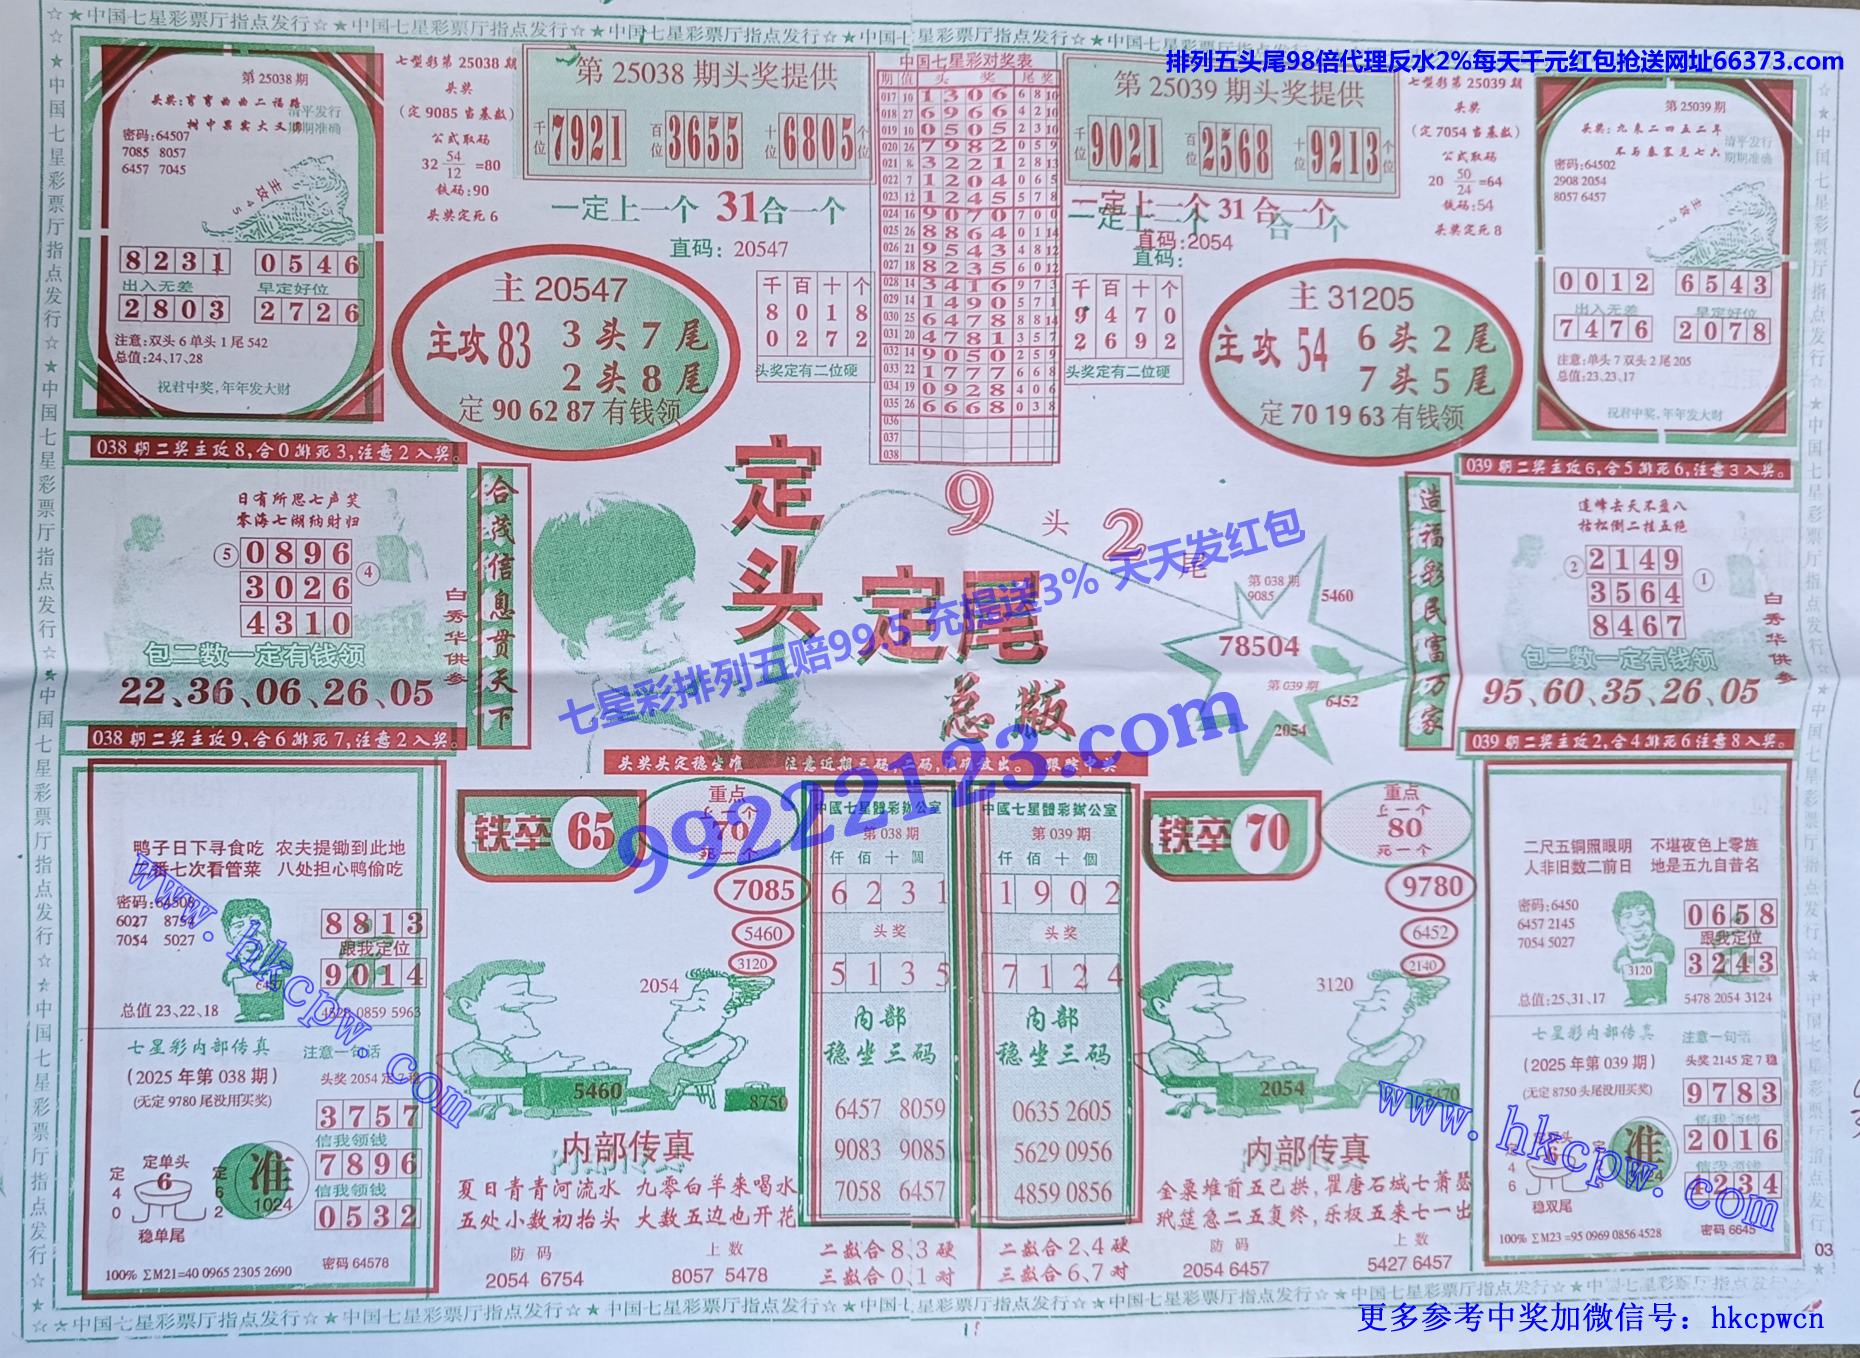 ☆★中国七星彩票厅指点发行☆★中国七星彩票厅指点发行☆★中国七星彩票厅指点发行☆★中国七星彩票厅指点发行
排列五头尾98倍代理反水2%每天千元红包抢送网址66373.com
第 25038 期
头奖:弯弯曲曲二福路
清平发行
期期准确
密码:64507
7085 8057
6457 7045
主攻45
8231 0546
出入无差 早定好位
2803 2726
注意:双头 6 单头 1 尾 542
总值:24、17、28
祝君中奖,年年发大财
七型彩第 25038 期
头奖
(定 9085 当基数)
公式取码
32 54/12 =80
铁码:90
头奖定死 6
第 25038 期头奖提供
千位 7921 百位 3655 十位 6805 个位
一定上一个 31合一个
直码:20547
主 20547
主攻 83 3 头 7 尾
2 头 8 尾
定 90 62 87 有钱领
千百十个
8018
0272
头奖定有二位硬
中国七星彩对奖表
期 值 头奖 尾奖
017 10 1306 6 8 10
018 27 6966 4 2 10
019 10 0505 2 3 10
020 26 7982 0 5 9
021 8 3221 2 8 13
022 7 1204 0 6 5
023 12 1245 5 7 8
024 16 9070 7 0 0
025 26 8864 0 1 14
026 21 9543 4 8 12
027 18 8235 6 0 12
028 14 3416 9 7 3
029 14 1490 5 7 1
030 25 6478 8 8 14
031 20 4781 3 5 7
032 14 9050 2 5 9
033 22 1777 6 6 8
034 19 0928 4 0 6
035 26 6668 0 3 8
036
037
038
第 25039 期头奖提供
千位 9021 百位 2568 十位 9213 个位
一定上一个 31 合一个
直码:2054
千百十个
9470
2692
头奖定有二位硬
主 31205
主攻 54 6 头 2 尾
7 头 5 尾
定 70 19 63 有钱领
七型彩第 25039 期
头奖
(定 7054 当基数)
公式取码
20 50/24 =64
铁码:54
头奖定死 8
第 25039 期
头奖:九来二四五二年
清平发行
期期准确
密码:64502
2908 2054
8057 6457
0012 6543
出入无差 早定好位
7476 2078
注意:单头 7 双头 2 尾 205
总值:23、23、17
祝君中奖,年年发大财
038 期二奖主攻 8,合 0 排死 3,注意 2 入奖。
日有所思七声笑
零海七湖纳财归
⑤ 0896
3026 ④
4310
包二数一定有钱领
22、36、06、26、05
白秀华供参
038 期二奖主攻 9,合 6 排死 7,注意 2 入奖。
合茂信息贯天下
定头定尾
9 头 2 尾
总版
七星彩排列五赔99.5 充提送3% 天天发红包
99222123.com
第 038 期
9085
5460
78504
第 039 期
6452
2054
造福彩民富万家
039 期二奖主攻 6,合 5 排死 6,注意 3 入奖。
莲峰去天不盈八
枯松倒二挂五绝
② 2149
3564 ①
8467
包二数一定有钱领
95、60、35、26、05
白秀华供参
039 期二奖主攻 2,合 4 排死 6 注意 8 入奖。
鸭子日下寻食吃 农夫提锄到此地
番七次看管菜 八处担心鸭偷吃
密码:64508
6027 8754
7054 5027
8813
跟我定位
9014
总值 23、22、18
4528 0859 5963
七星彩内部传真
(2025 年第 038 期)
(无定 9780 尾没用买奖)
注意一句话
头奖 2054 定 7 稳
3757
信我领钱
7896
信我领钱
0532
定 4 0
定单头
6
稳单尾
定 6 2
准
1024
100% ΣM21=40 0965 2305 2690
密码 64578
铁卒 65
重点
上一个
70
死一个
7085
5460
3120
2054
5460
8750
内部传真
夏日青青河流水 九零白羊来喝水
五处小数初抬头 大数五边也开花
防码 上数
2054 6754 8057 5478
中國七星體彩辦公室
第 038 期
仟佰十個
6231
头奖
5135
内部
稳坐三码
6457 8059
9083 9085
7058 6457
二数合 8、3 硬
三数合 0、1 对
中國七星體彩辦公室
第 039 期
仟佰十個
1902
头奖
7124
内部
稳坐三码
0635 2605
5629 0956
4859 0856
二数合 2、4 硬
三数合 6、7 对
铁卒 70
重点
上一个
80
死一个
9780
6452
2140
3120
2054
内部传真
金粟堆前五己拱,瞿唐石城七萧瑟
玳筵急二五复终,乐极五来七一出
防码 上数
2054 6457 5427 6457
二尺五铜照眼明 不堪夜色上零旌
人非旧数二前日 地是五九自昔名
密码:6450
6457 2145
7054 5027
3120
0658
跟我定位
3243
总值:25、31、17
5478 2054 3124
七星彩内部传真
(2025 年第 039 期)
(无定 8750 头尾没用买奖)
注意一句话
头奖 2145 定 7 稳
9783
信我领钱
2016
信我领钱
4234
稳双尾
准
100% ΣM23 =95 0969 0856 4528
密码 6645
www.hkcpw.com
www.hkcpw.com
☆★中国七星彩票厅指点发行☆★中国七星彩票厅指点发行☆★中国七星彩票厅指点发行☆★中国七星彩票厅指点发行
更多参考中奖加微信号：hkcpwcn